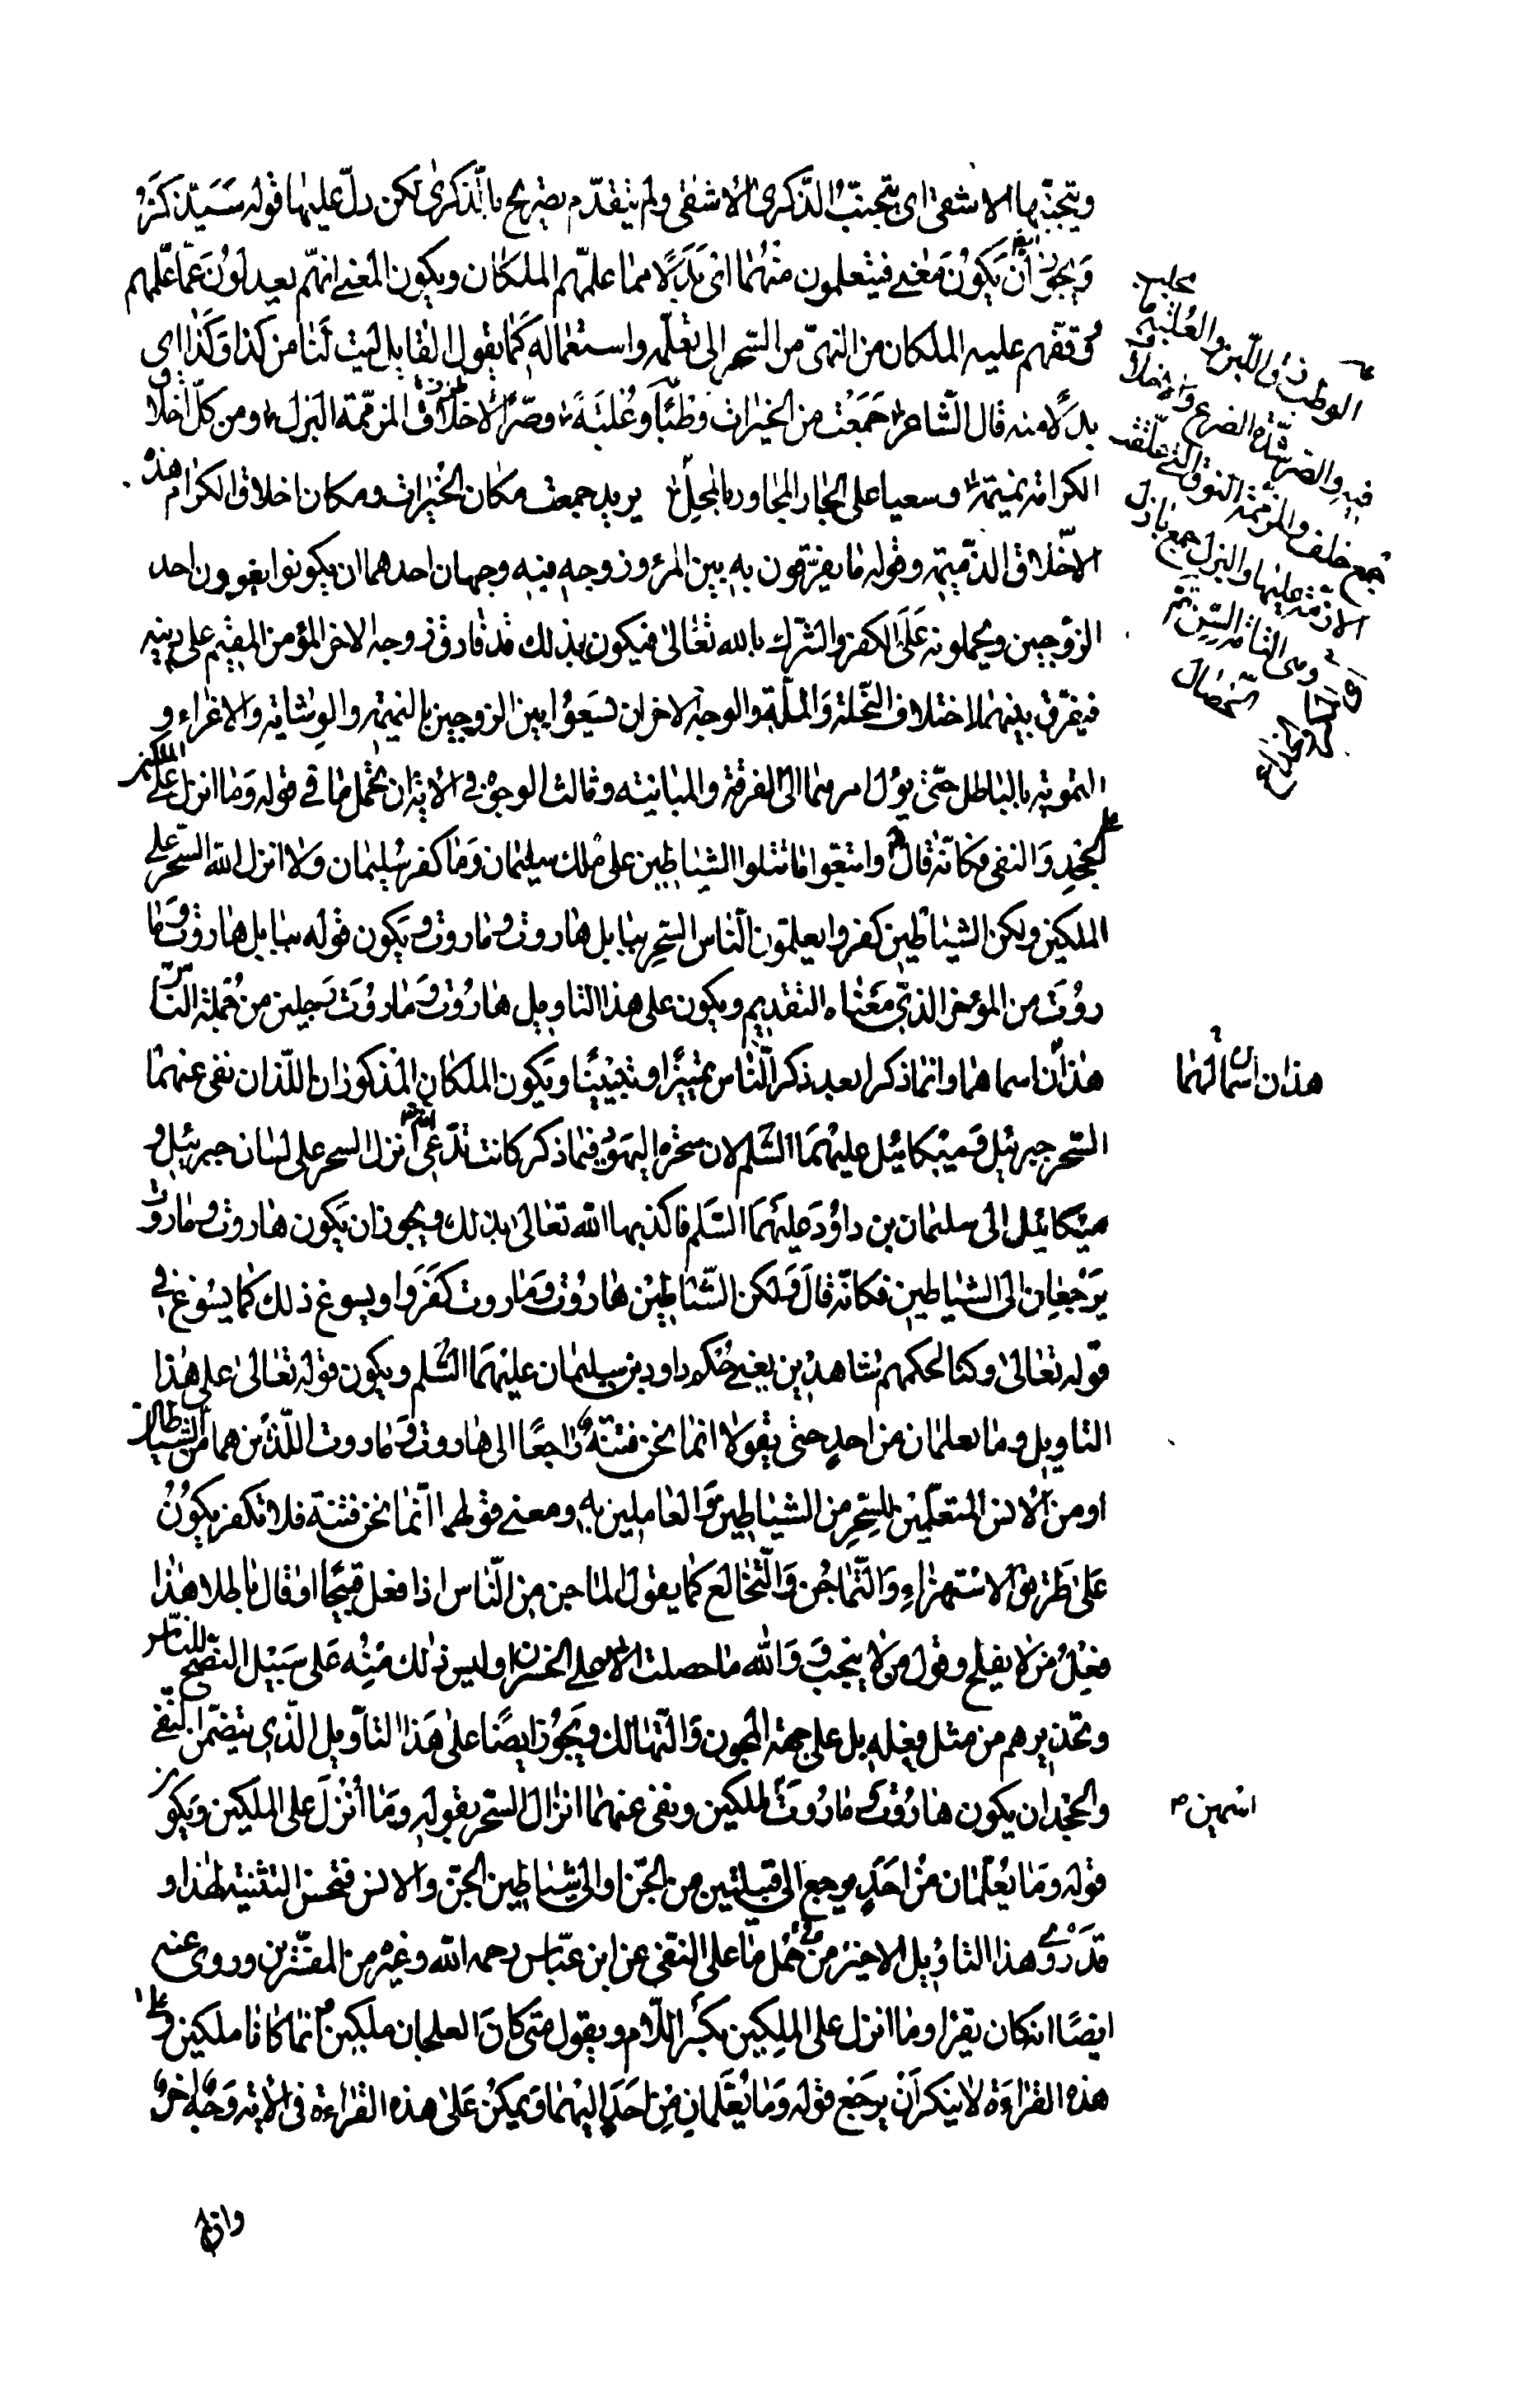 ويتجنّبها الاشقى اى يتجنّب الذّكرى الاشقى ولم يتقدّم تصريح بالذكرى لكن دلّ عليها قوله سَيَذّكرُ
ويجوز ايضا أن يكون معنى فيتعلمون منهما اى بدلًا مما علّمهم الملكان ويكون المعنى انهم يعدلون عمّا علّمهم
ووقفهم عليه الملكان من النهى من السّحر الى تعلّمه واستعماله كما يقول القايل ليت لنا من كذا وكذا اى
بدلًا منه قال الشاعر جمعت من الخيرات وطبًا وعُلبةً وصرًّا لاخلاف المزمّمة البزل ومن كلّ اخلاق
الكرام نميمة وسعيا على الجار المجاور بالمحل يريد جمعت مكان الخيرات ومكان اخلاق الكرام هذه
الاخلاق الذميمة وقوله ما يفرّقون به بين المرء وزوجه فيه وجهان احدهما ان يكونوا يغوون احد
الزوجين ويحملونه على الكفر والشرك بالله تعالى فيكون بذلك قد فارق زوجه الاخر المؤمن المقيم على دينه
فيفرق بينهما اختلاف النّحلة والملّة والوجه الاخر ان يسعوا بين الزوجين بالنميمة والوشاية والاغراء و
التمويه بالباطل حتّى يؤل امرهما الى الفرقة والمباينة وثالث الوجوه فى الاية ان تحمل ما فى قوله وما انزل على الملكين
على الجحد والنفى فكانه قال واتبعوا ما تتلوا الشياطين على ملك سليمان وما كفر سليمان ولا انزل الله السّحر على
الملكين ولكن الشياطين كفروا يعلمون النّاس السّحر ببابل هاروت وماروت ويكون قوله ببابل هاروت وما
روت من المؤخر الذى معناه التقديم ويكون على هذا التاويل هاروت وماروت رجلين من جملة النّاس
هذان اسماهما وانما ذكرا بعد ذكر النّاس تمييزا وتبيينًا ويكون الملكان المذكوران اللّذان نفى عنهما
السّحر جبرئيل وميكائيل عليهما السّلم لان سحرة اليهود فيما ذكر كانت تدّعى ان الله انزل السحر على لسان جبرئيل و
ميكائيل الى سليمان بن داود عليهما السّلم فاكذبها الله تعالى بذلك ويجوز ان يكون هاروت وماروت
يرجعان الى الشياطين فكانّه قال ولكن الشّياطين هاروت وماروت كفروا ويسوغ ذلك كما يسوغ فى
قوله تعالى وكنا لحكمهم شاهدين يعنى حكم داود بن سليمان عليهما السّلم ويكون قوله تعالى على هذا
التاويل وما يعلمان من احد حتى يقولا انما نحن فتنة راجعًا الى هاروت وماروت اللّذين هما من الشياطين
او من الانس المتعلّمين للسّحر من الشياطين والعاملين به ومعنى قولهما انّما نحن فتنة فلا تكفر يكونُ
على طريق الاستهزاء والتّماجن والتّخالع كما يقول الماجن من النّاس اذا فعل قبيحًا او قال باطلا هذا
فعلُ من لا يفلح وقول من لا ينجب والله ما حصلت الّا على الخسران وليس ذلك منه على سبيل النّصح للنّاس
وتحذيرهم من مثل فعله بل على جهة المجون والتّهالك ويجوز ايضًا على هذا التاويل الذى يتضمّن النّفى
والجحد ان يكون هاروت وماروت لملكين ونفى عنهما انزال السّحر بقوله وما اُنزل على الملكين ويكون
قوله وما يُعلّمان من احد يرجع الى قبيلتين من الجّن او الى شياطين الجنّ والانس فتحسن التثنية لهذا و
قد روى هذا التاويل الاخير من حمل ما على النفى عن ابن عبّاس رحمه الله وغيره من المفسّرين وروى عنه
ايضًا انه كان يقرا وما انزل على الملِكين بكسر اللّام ويقول متى كان العلجان ملكين انما كانا ملكين وعلى
هذه القراءة لا ينكر أن يرجع قوله وما يُعلّمان من احدٍ اليهما ويمكن على هذه القراءة فى الاية وجه اخر
وهو
الوطب زق اللّبن والعُلبة ما يحلب
فيه والصرّ شدّ الضرع والاخلاف
جمع خلف والمزممة النوق التى علّقت
الازمّة عليها والبزل جمع بازل
وهى التامة السّن
هذان اسمان لهما
اسمين